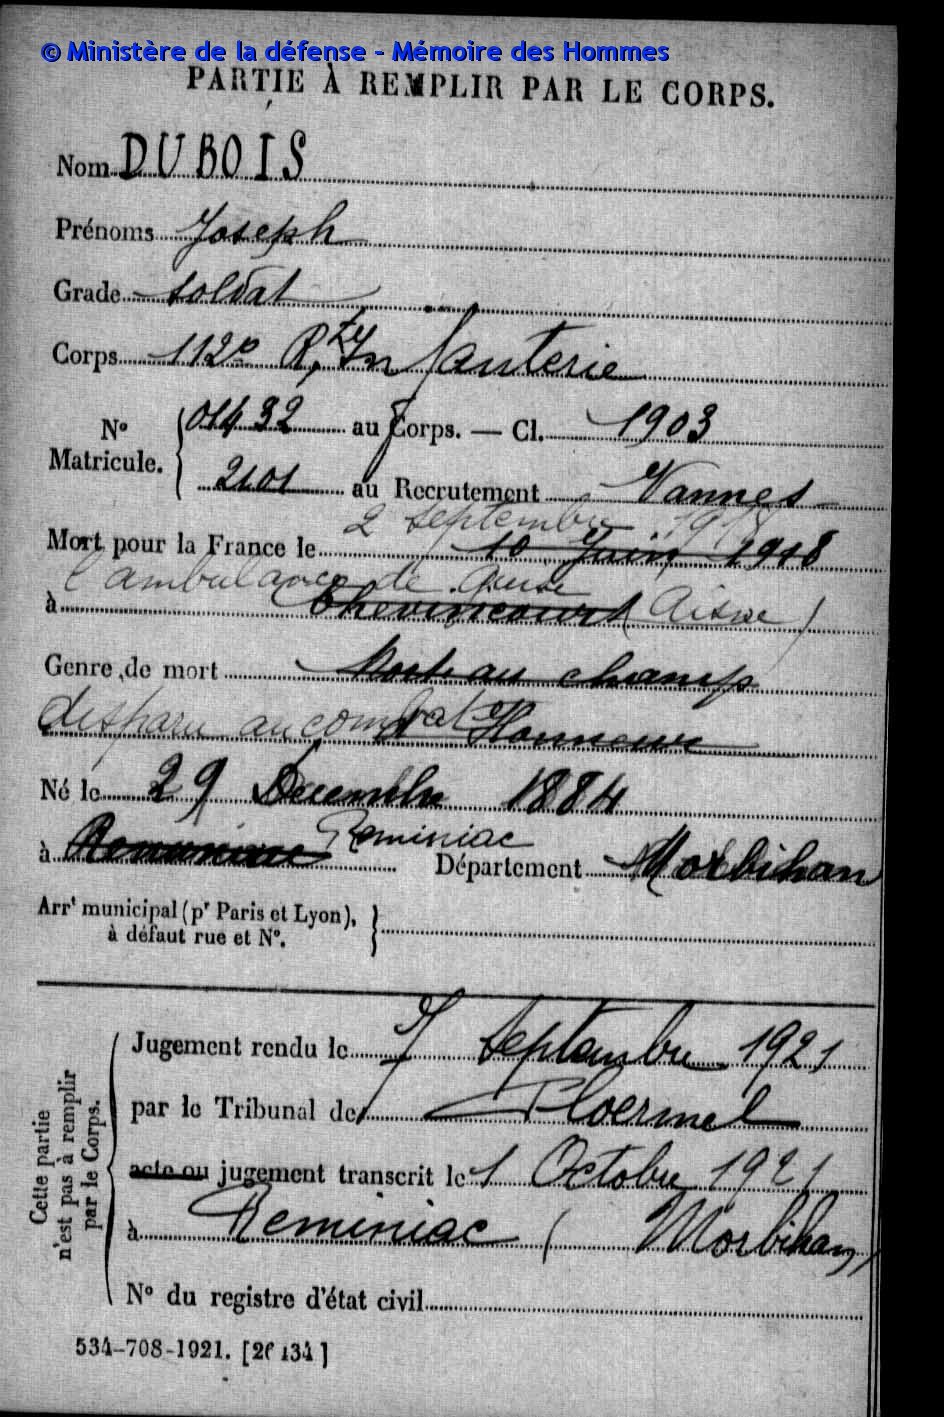 © Ministère de la défense - Mémoire des Hommes
PARTIE À REMPLIR PAR LE CORPS.
Nom DUBOIS
Prénoms Joseph
Grade soldat
Corps 112e Rt d'Infanterie
No Matricule. { 01432 au Corps. — Cl. 1903
2101 au Recrutement Vannes
2 septembre 1918
Mort pour la France le 10 Juin 1918
l'ambulance de Guise
à Chevincourt (Aisne)
Genre de mort Mort au champ
disparu au combat d'Honneur
Né le 29 Décembre 1884
Reminiac
à Département Morbihan
Arrt municipal (pr Paris et Lyon), à défaut rue et No. }
Cette partie n'est pas à remplir par le Corps.
Jugement rendu le 7 Septembre 1921
par le Tribunal de Ploermel
acte ou jugement transcrit le 1 Octobre 1921
à Reminiac (Morbihan)
No du registre d'état civil
534-708-1921. [26434]